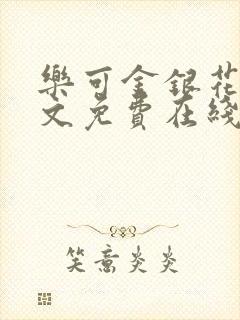 樂可金銀花
文免費在綫
笑意炎炎